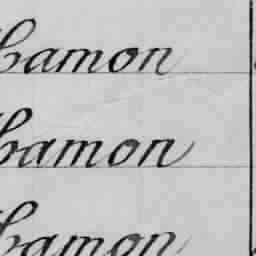 Camon
Camon
Camon